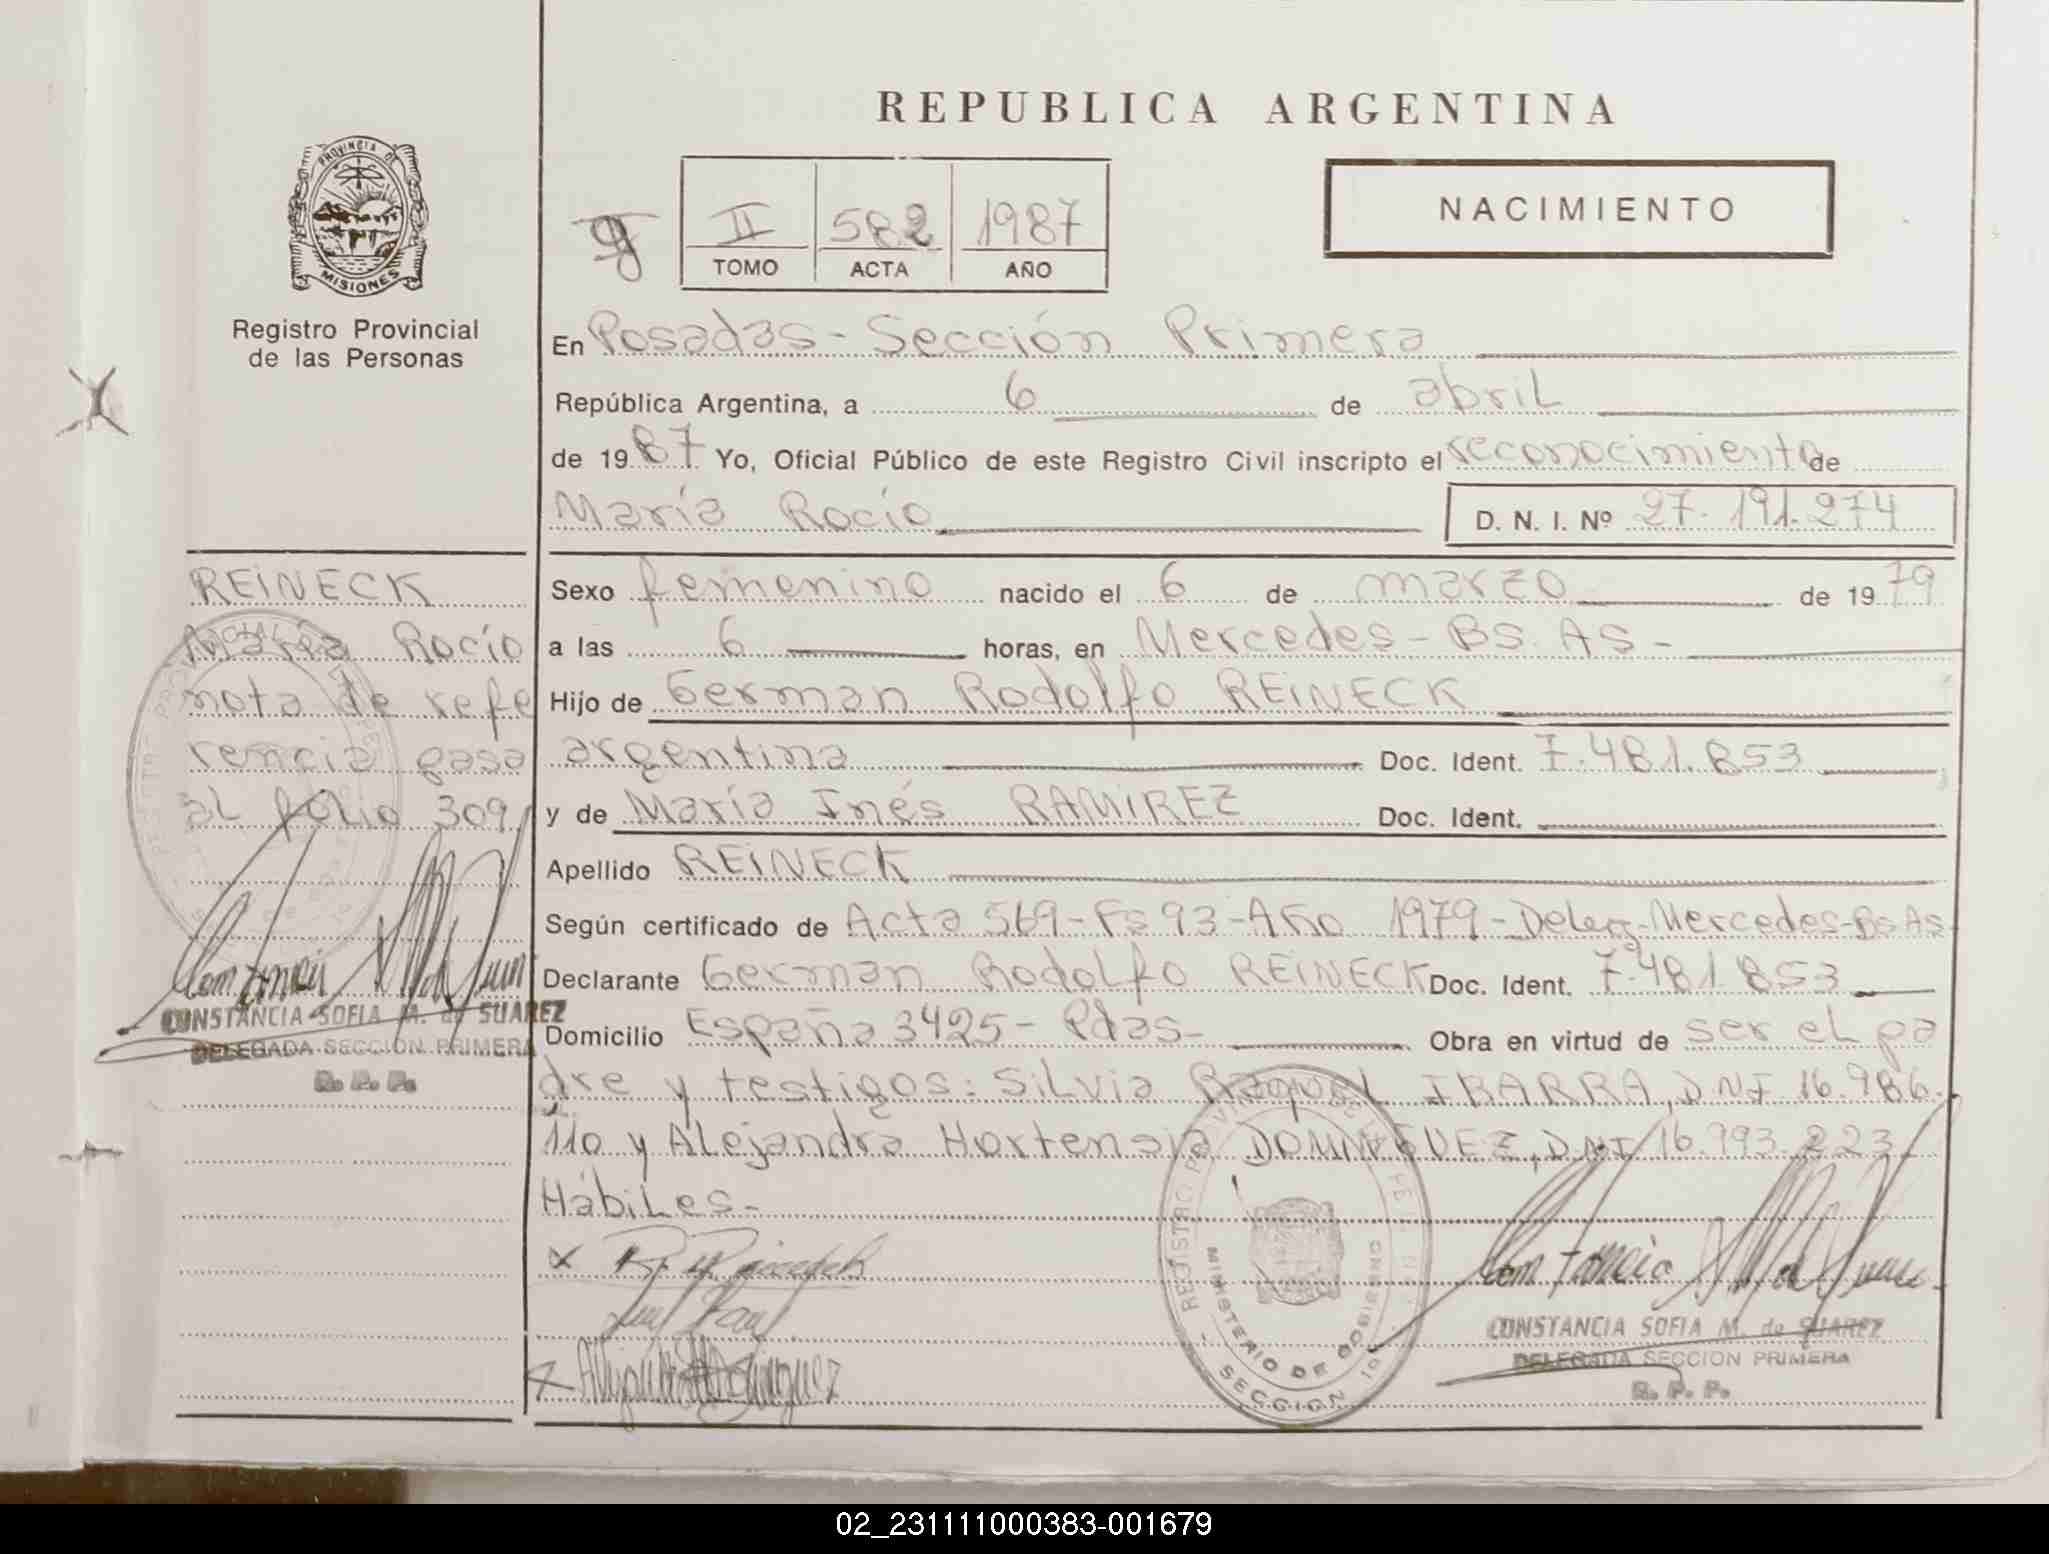 REPUBLICA ARGENTINA
PROVINCIA DE
MISIONES
Registro Provincial
de las Personas
II 582 1987
TOMO ACTA AÑO
NACIMIENTO
En Posadas - Sección Primera
República Argentina, a 6 de abril
de 1987 Yo, Oficial Público de este Registro Civil inscripto el reconocimiento de
María Rocío D. N. I. Nº 27.191.274
Sexo femenino nacido el 6 de marzo de 1979
a las 6 horas, en Mercedes - BS. AS -
Hijo de German Rodolfo REINECK
argentina Doc. Ident. 7.481.853
y de María Inés RAMIREZ Doc. Ident.
Apellido REINECK
Según certificado de Acta 569 - Fs 93 - Año 1979 - Deleg - Mercedes - Bs As -
Declarante German Rodolfo REINECK Doc. Ident. 7.481.853
Domicilio España 3425 - Pdas - Obra en virtud de ser el pa
dre y testigos: Silvia Raquel IBARRA, DNI 16.986.
110 y Alejandra Hortensia DOMINGUEZ, DNI 16.993.223
Hábiles -
REINECK
María Rocío
nota de refe
rencia pasa
al folio 309
CONSTANCIA SOFIA M. de SUAREZ
DELEGADA SECCION PRIMERA
R. P. P.
MINISTERIO DE GOBIERNO
SECCION 1a
CONSTANCIA SOFIA M. de SUAREZ
DELEGADA SECCION PRIMERA
R. P. P.
02_231111000383-001679